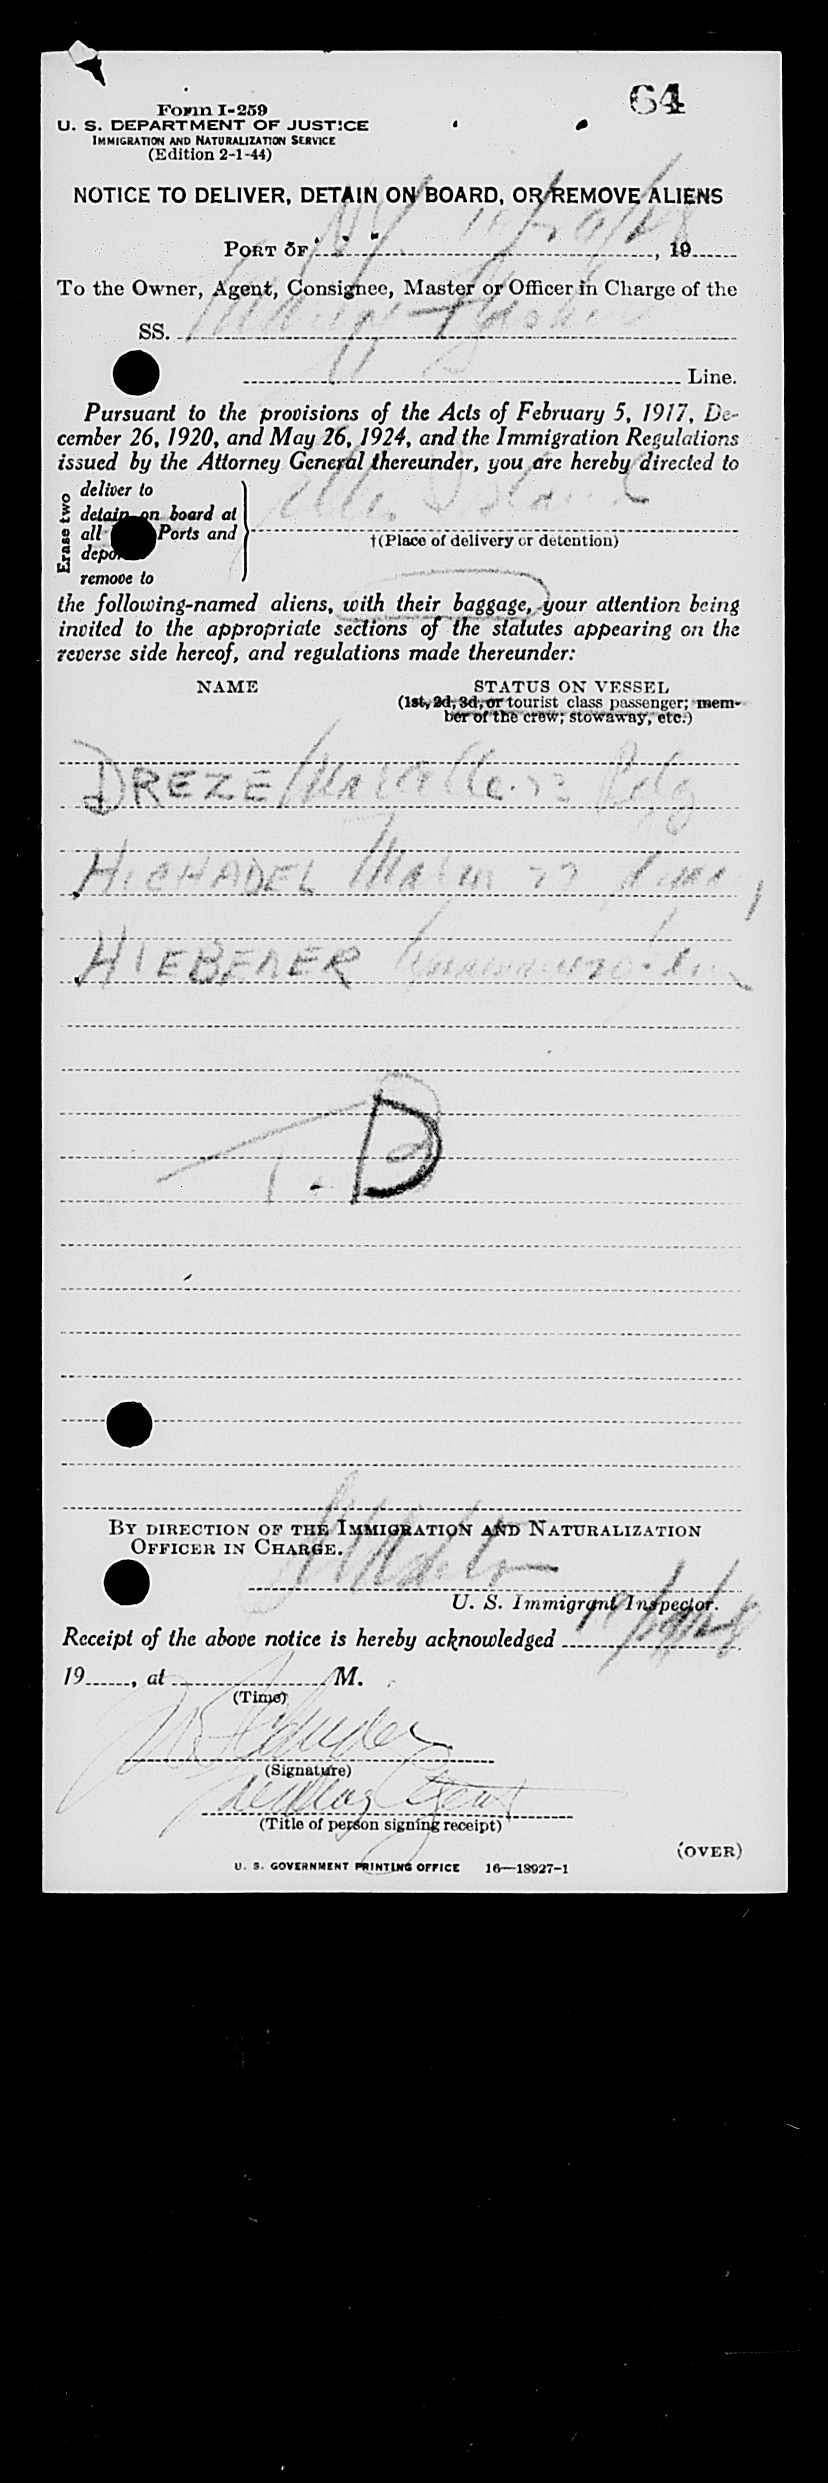 64
Form I-259
U. S. DEPARTMENT OF JUSTICE
IMMIGRATION AND NATURALIZATION SERVICE
(Edition 2-1-44)
NOTICE TO DELIVER, DETAIN ON BOARD, OR REMOVE ALIENS
PORT OF NY , 19
To the Owner, Agent, Consignee, Master or Officer in Charge of the
SS. Marine
Line.
Pursuant to the provisions of the Acts of February 5, 1917, De-
cember 26, 1920, and May 26, 1924, and the Immigration Regulations
issued by the Attorney General thereunder, you are hereby directed to
Erase two
deliver to
detain on board at
all Ports and
depo
remove to
Ellis Island
†(Place of delivery or detention)
the following-named aliens, with their baggage, your attention being
invited to the appropriate sections of the statutes appearing on the
reverse side hereof, and regulations made thereunder:
NAME STATUS ON VESSEL
(1st, 2d, 3d, or tourist class passenger; mem-
ber of the crew; stowaway, etc.)
DREZE Marcelle
HICHADEL
HIEBENER
T. D
BY DIRECTION OF THE IMMIGRATION AND NATURALIZATION
OFFICER IN CHARGE.
U. S. Immigrant Inspector.
Receipt of the above notice is hereby acknowledged
19 , at M.
(Time)
(Signature)
(Title of person signing receipt)
(OVER)
U. S. GOVERNMENT PRINTING OFFICE 16—18927-1